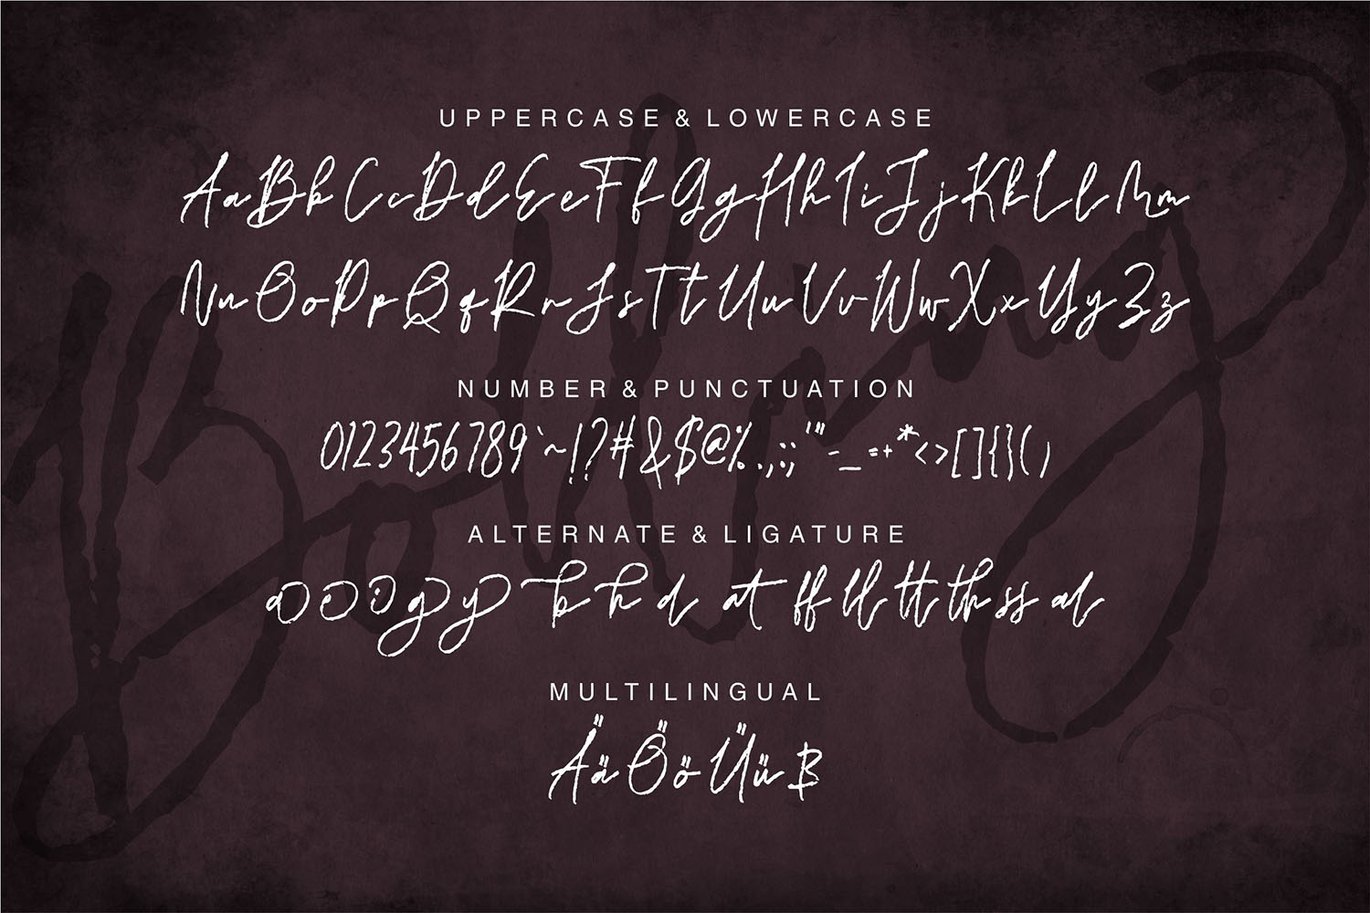 UPPERCASE & LOWERCASE
AaBbCcDdEeFfGgHhIiJjKkLlMm
NnOoPpQqRrSsTtUuVvWwXxYyZz
NUMBER & PUNCTUATION
0123456789`~!?#&$@%.,:;'"-_=+*<>[]{}()
ALTERNATE & LIGATURE
a o o g y b h d at ff ll tt th ss al
MULTILINGUAL
ÄäÖöÜüß